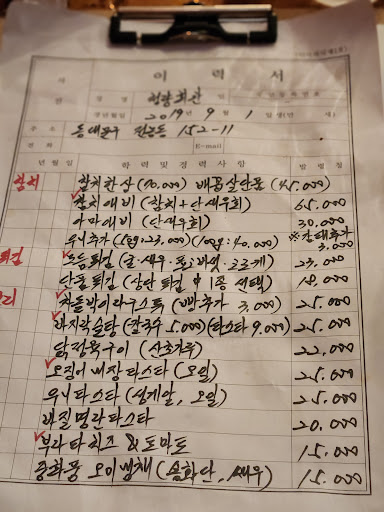 이 력 서
성 명 청량회관 인
생년월일 2019 년 9 월 1 일생 (만 세)
주 소 동대문구 전농동 152-11
전 화 E-mail
년 월 일 학 력 및 경 력 사 항 발 령 청
참치 참치한상 (90.000) 배꼽살단품 (45.000)
참치애비 (참치+단새우회) 65.000
아마에비 (단새우회) 30.000
우니추가 (50g:23.000) (100g:40.000) ※감태추가 3.000
튀김 모듬튀김 (굴·새우·고로케) 23.000
단품튀김 (상단 튀김 中 1종 선택) 18.000
요리 차돌박이라구스튜 (빵추가 3.000) 25.000
바지락술탕 (칼국수 5.000) (파스타 9.000) 25.000
닭정육구이 (산초가루) 22.000
오징어내장파스타 (오일) 25.000
우니파스타 (성게알, 오일) 25.000
바질명란파스타 20.000
부라타치즈 & 토마토 15.000
중화풍 오이냉채 (송화단, 새우) 15.000